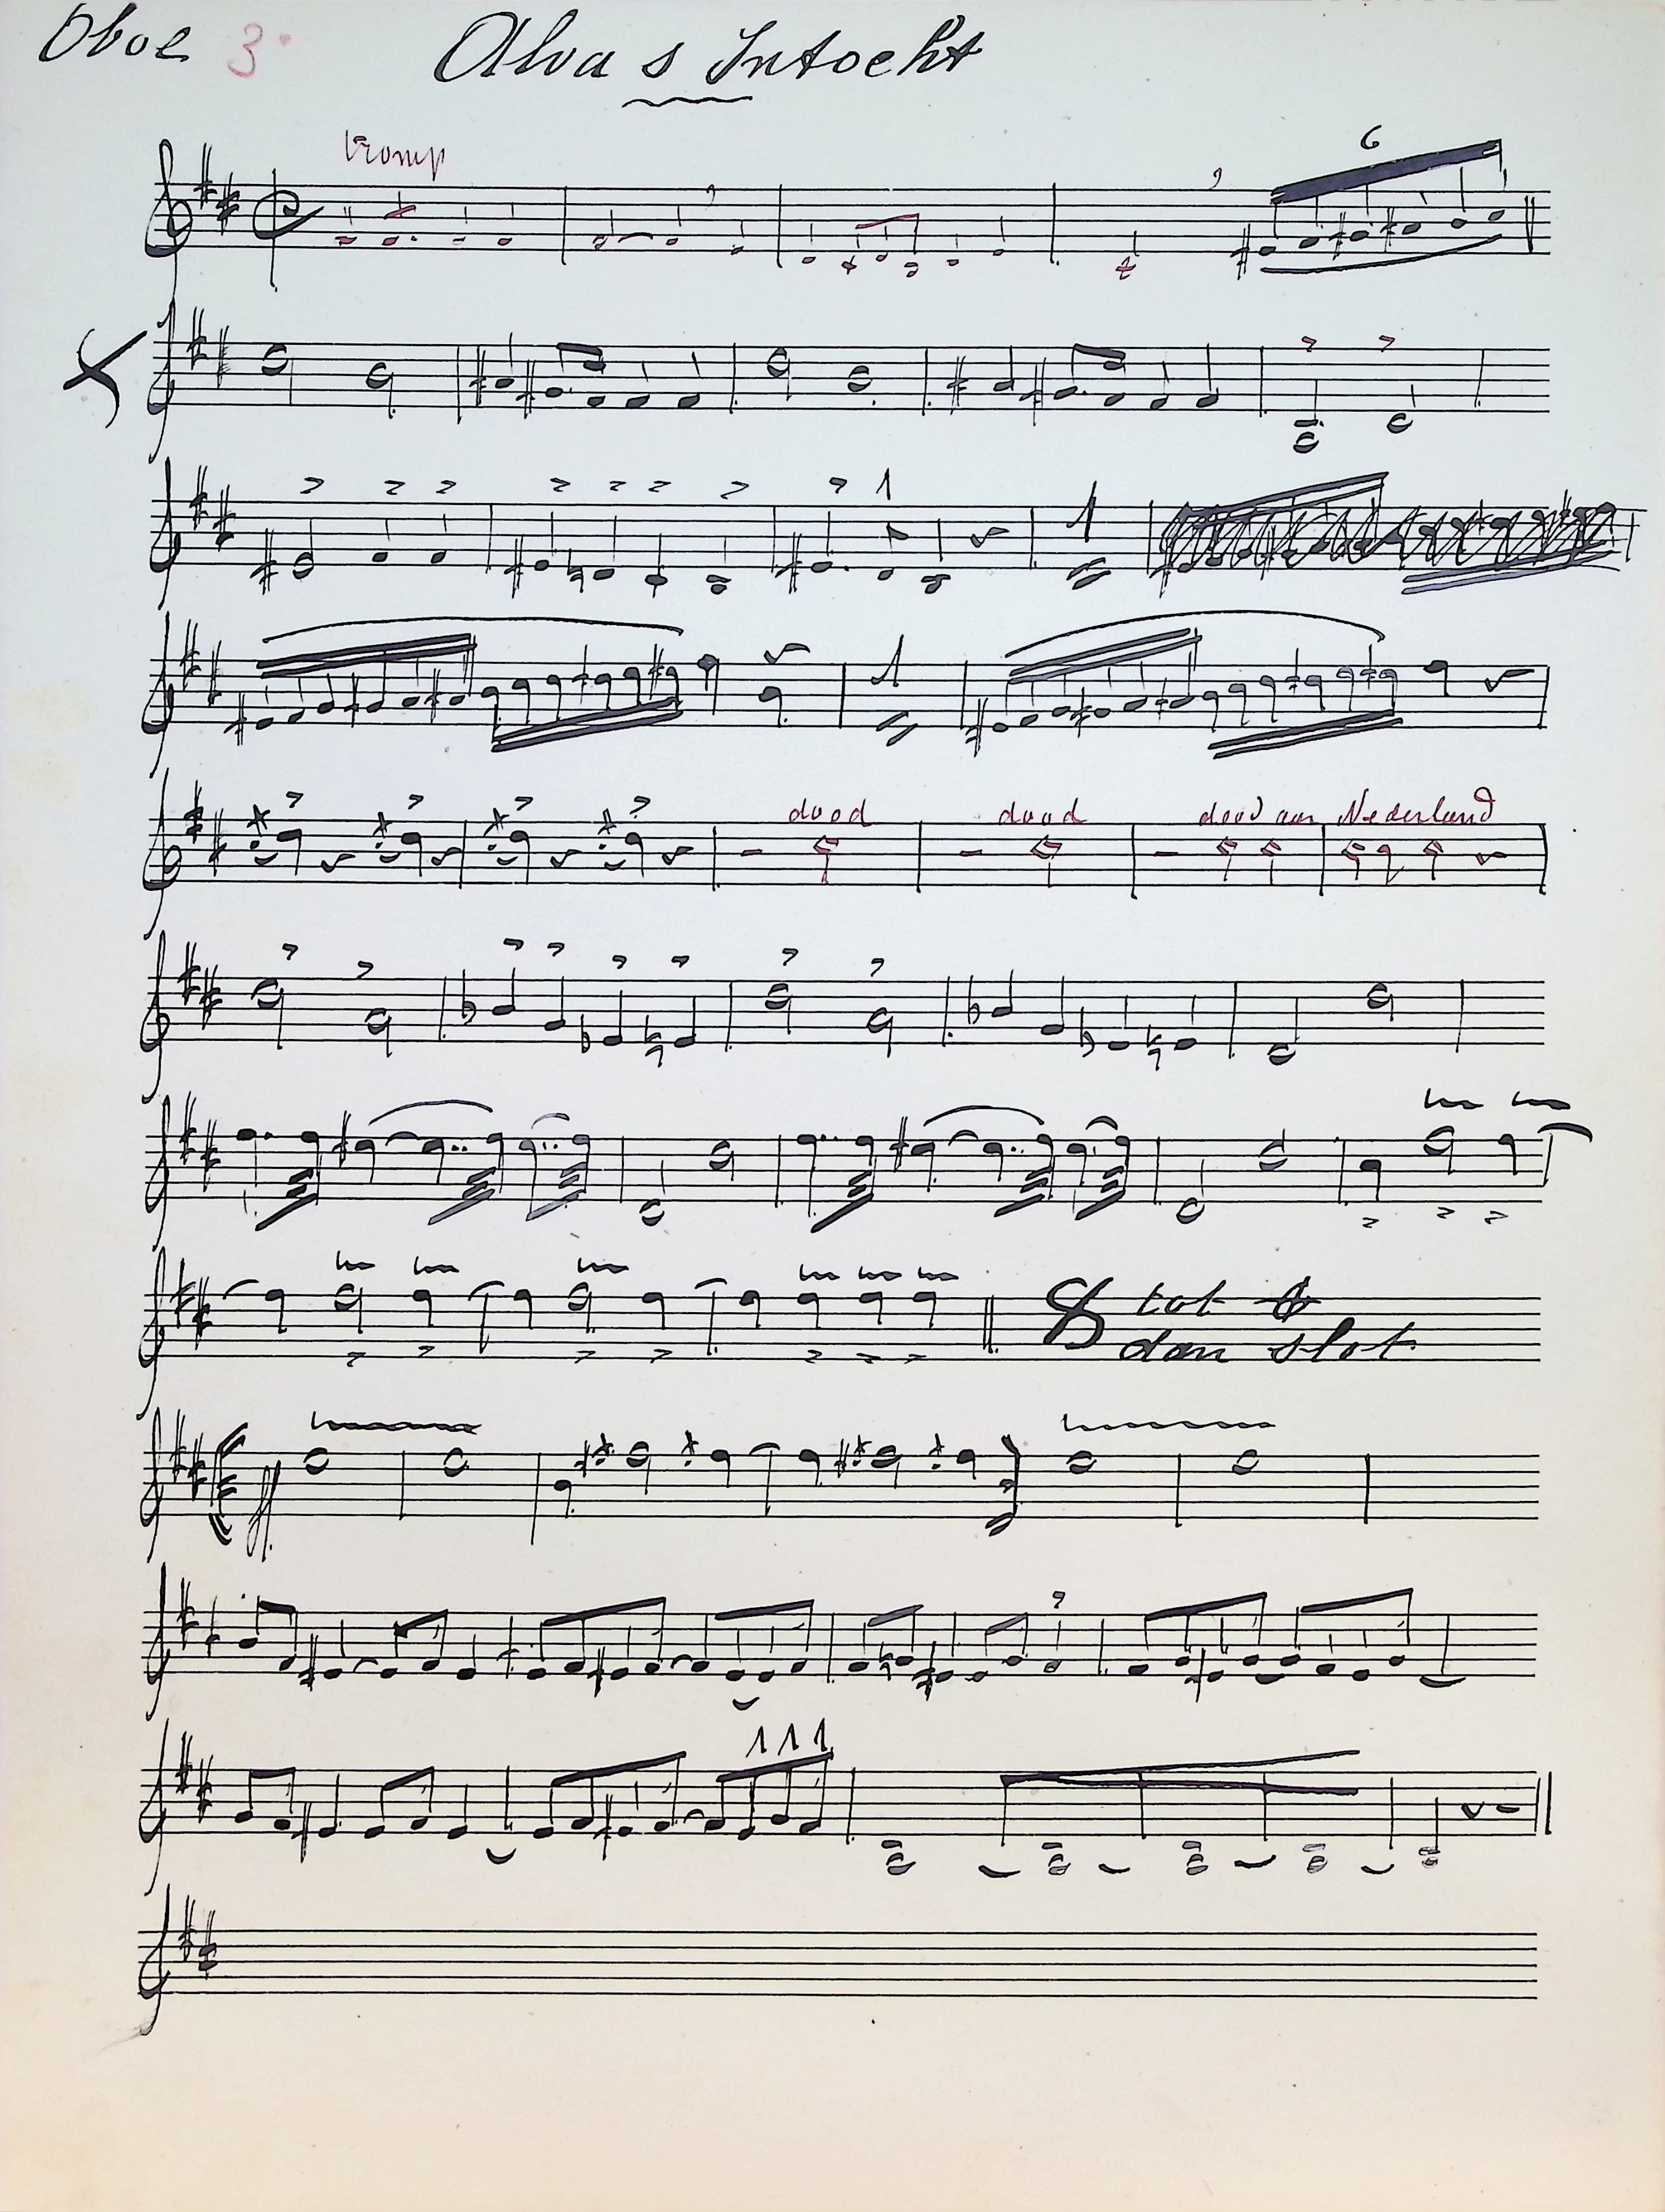 Oboe 3 Alva s Intocht
tromp
6
1
1
dood dood dood aan Nederland
tot
dan slot.
ff